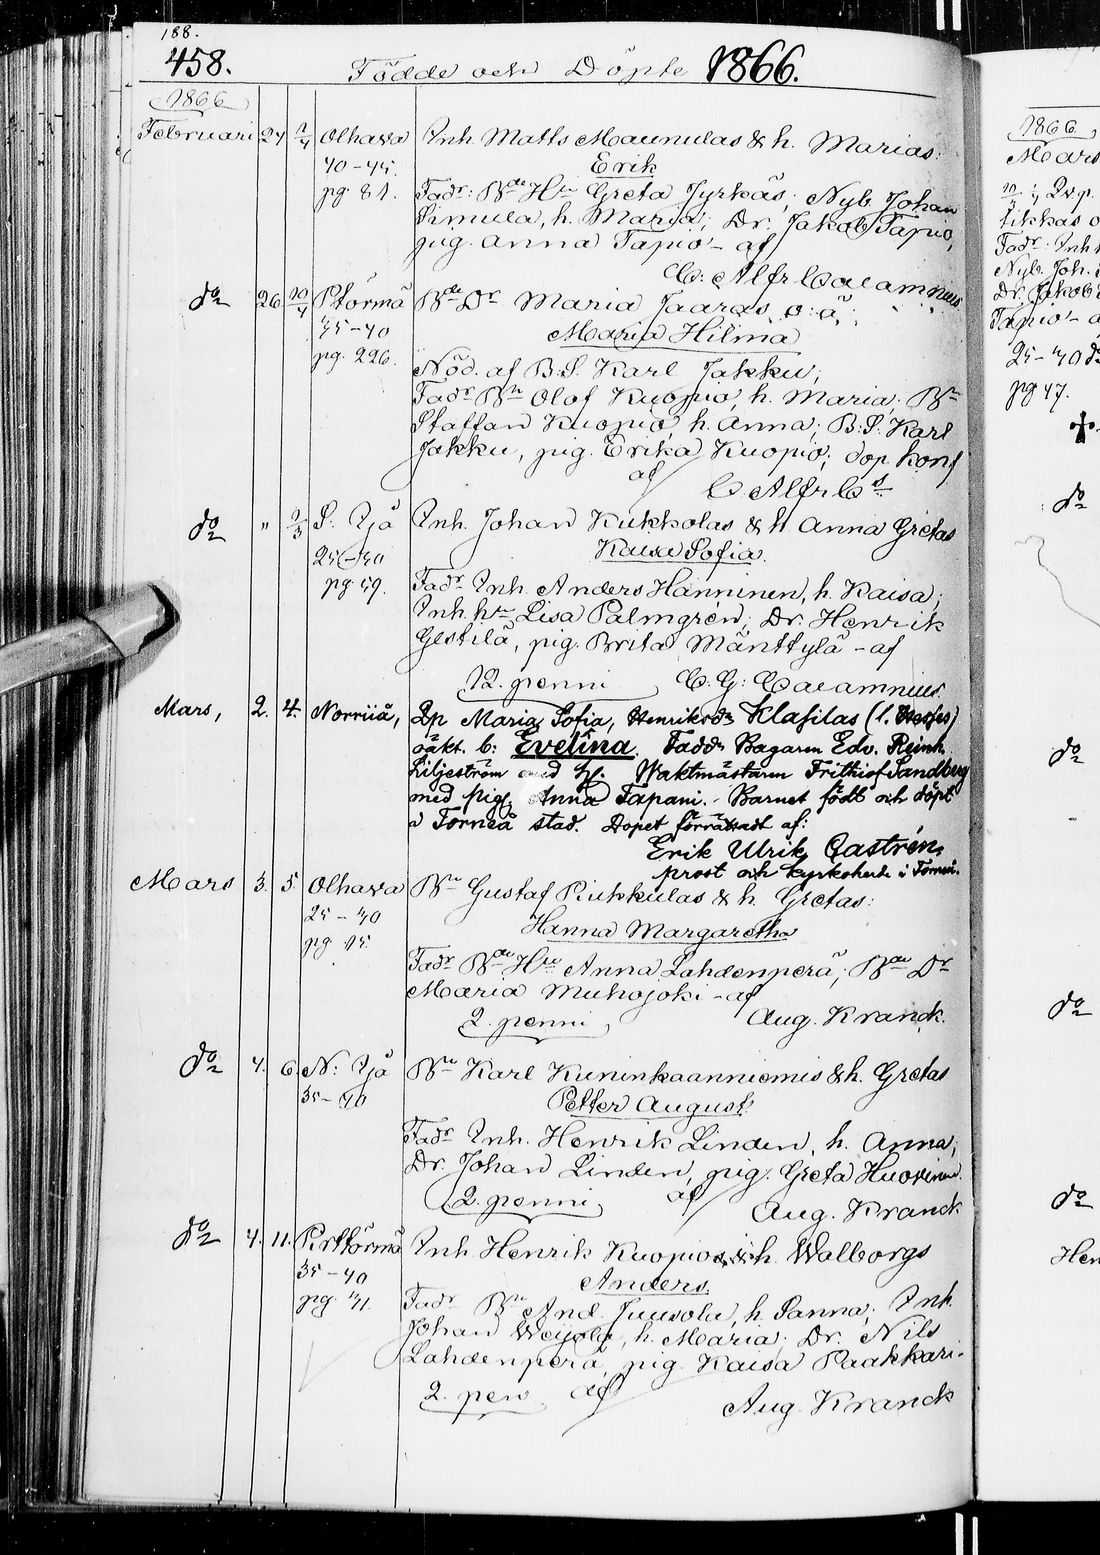 188.
458. Födde och Döpte 1866.
1866
Februari 27 1/4 Olhava Inh. Matts Maunulas & h. Marias:
40-45. Erik
pg. 81. Fadr: Bde Hru Greta Jyrkäs; Nyb. Johan
Simula, h. Maria; Dr. Jakob Tapio,
pig. Anna Tapio - af
C: Alfr Calamnius
do 26. Bde Dr Maria Jaaras o: ä:
35-40 Maria Hilma
pg. 226. Nöd. af B.S. Karl Jakku;
Fadr Bn Olof Kuopio, h. Maria; Bn
Staffan Kuopio, h. Anna; B.S. Karl
Jakku, pig. Erika Kuopio; dop. konf
af
C. Alfr Cs
do " 1/3 S: Ijå Inh. Johan Kukkolas & h. Anna Gretas
25-30 Kaisa Sofia.
pg. 59. Fadr Inh. Anders Hänninen, h. Kaisa;
Inh. hru Lisa Palmgrén; Dr. Henrik
Gestilä, pig. Brita Mänttylä - af
12. penni C. G: Calamnius
Mars, 2. 4. Maria Sofia, Henriksdr Klasilas
oäkt. b: Evelina. Faddr Bagaren Edv. Reinh.
Liljeström med h. Waktmästaren Frithiof Sandberg
med pig. Anna Tapani. Barnet födt och döpt
i Torneå stad. Dopet förrättadt af:
Erik Ulrik Castrén,
prost och kyrkoherde i Torneå.
Mars 3. 5. Olhava Bn Gustaf Pukkulas & h. Gretas:
25-30 Hanna Margaretha
pg. 15. Fadr Bde Hru Anna Lahdenperä; Bde Dr
Maria Muhojoki - af
2. penni Aug. Kranck.
do 4. 6. N: Ijå Bn Karl Kuninkaanniemis & h. Gretas
35-40 Petter August
Fadr Inh. Henrik Linden, h. Anna;
Dr. Johan Linden, pig. Greta Huovinen
2. penni af
Aug. Kranck
do 4. 11. Inh. Henrik Kuopios & h. Walborgs
35-40 Anders.
Fadr Bn And. Juusola, h. Sanna; Inh.
Johan h. Maria; Dr. Nils
Lahdenperä, pig. Kaisa Paakkari-
2. pen af
Aug. Kranck
1866
Mars
Fadr. Inh.
Nyb. Joh.
Dr. Jakob
Tapio - a
25-30
pg 47.
do
do
do
do
Hen